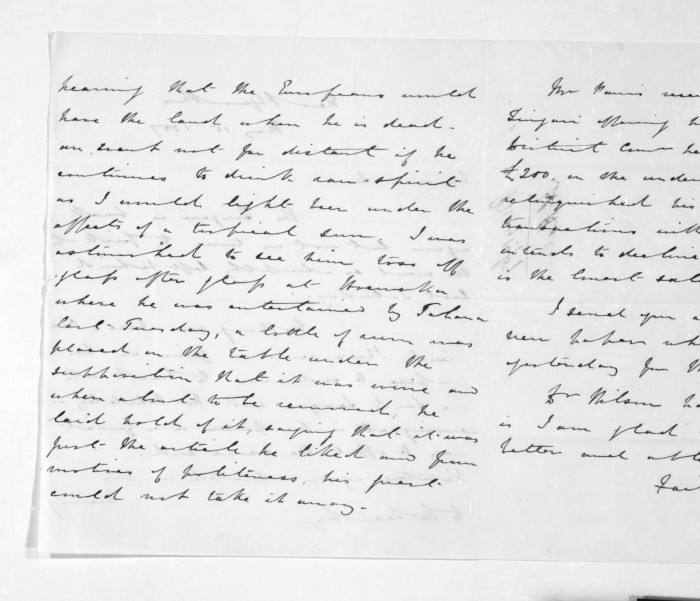 hearing that the Europeans would
have the land when he is dead -
an event not far distant if he
continues to drink raw spirit
as I would light beer under the
effects of a tropical sun. I was
astonished to see him toss off
glass after glass at
where he was entertained by Tahana
last Tuesday, a bottle of rum was
placed on the table under the
supposition that it was wine and
when about to be removed, he
laid hold of it, saying that it was
just the article he liked and from
motives of politeness, his guest
could not take it away -
Mr
offering
District
£200. on the under
relinquished his
transactions with
intends to decline
is the Court
I send you a
new paper wh
yesterday for
Dr Wilson
is I am glad
better and
Fai